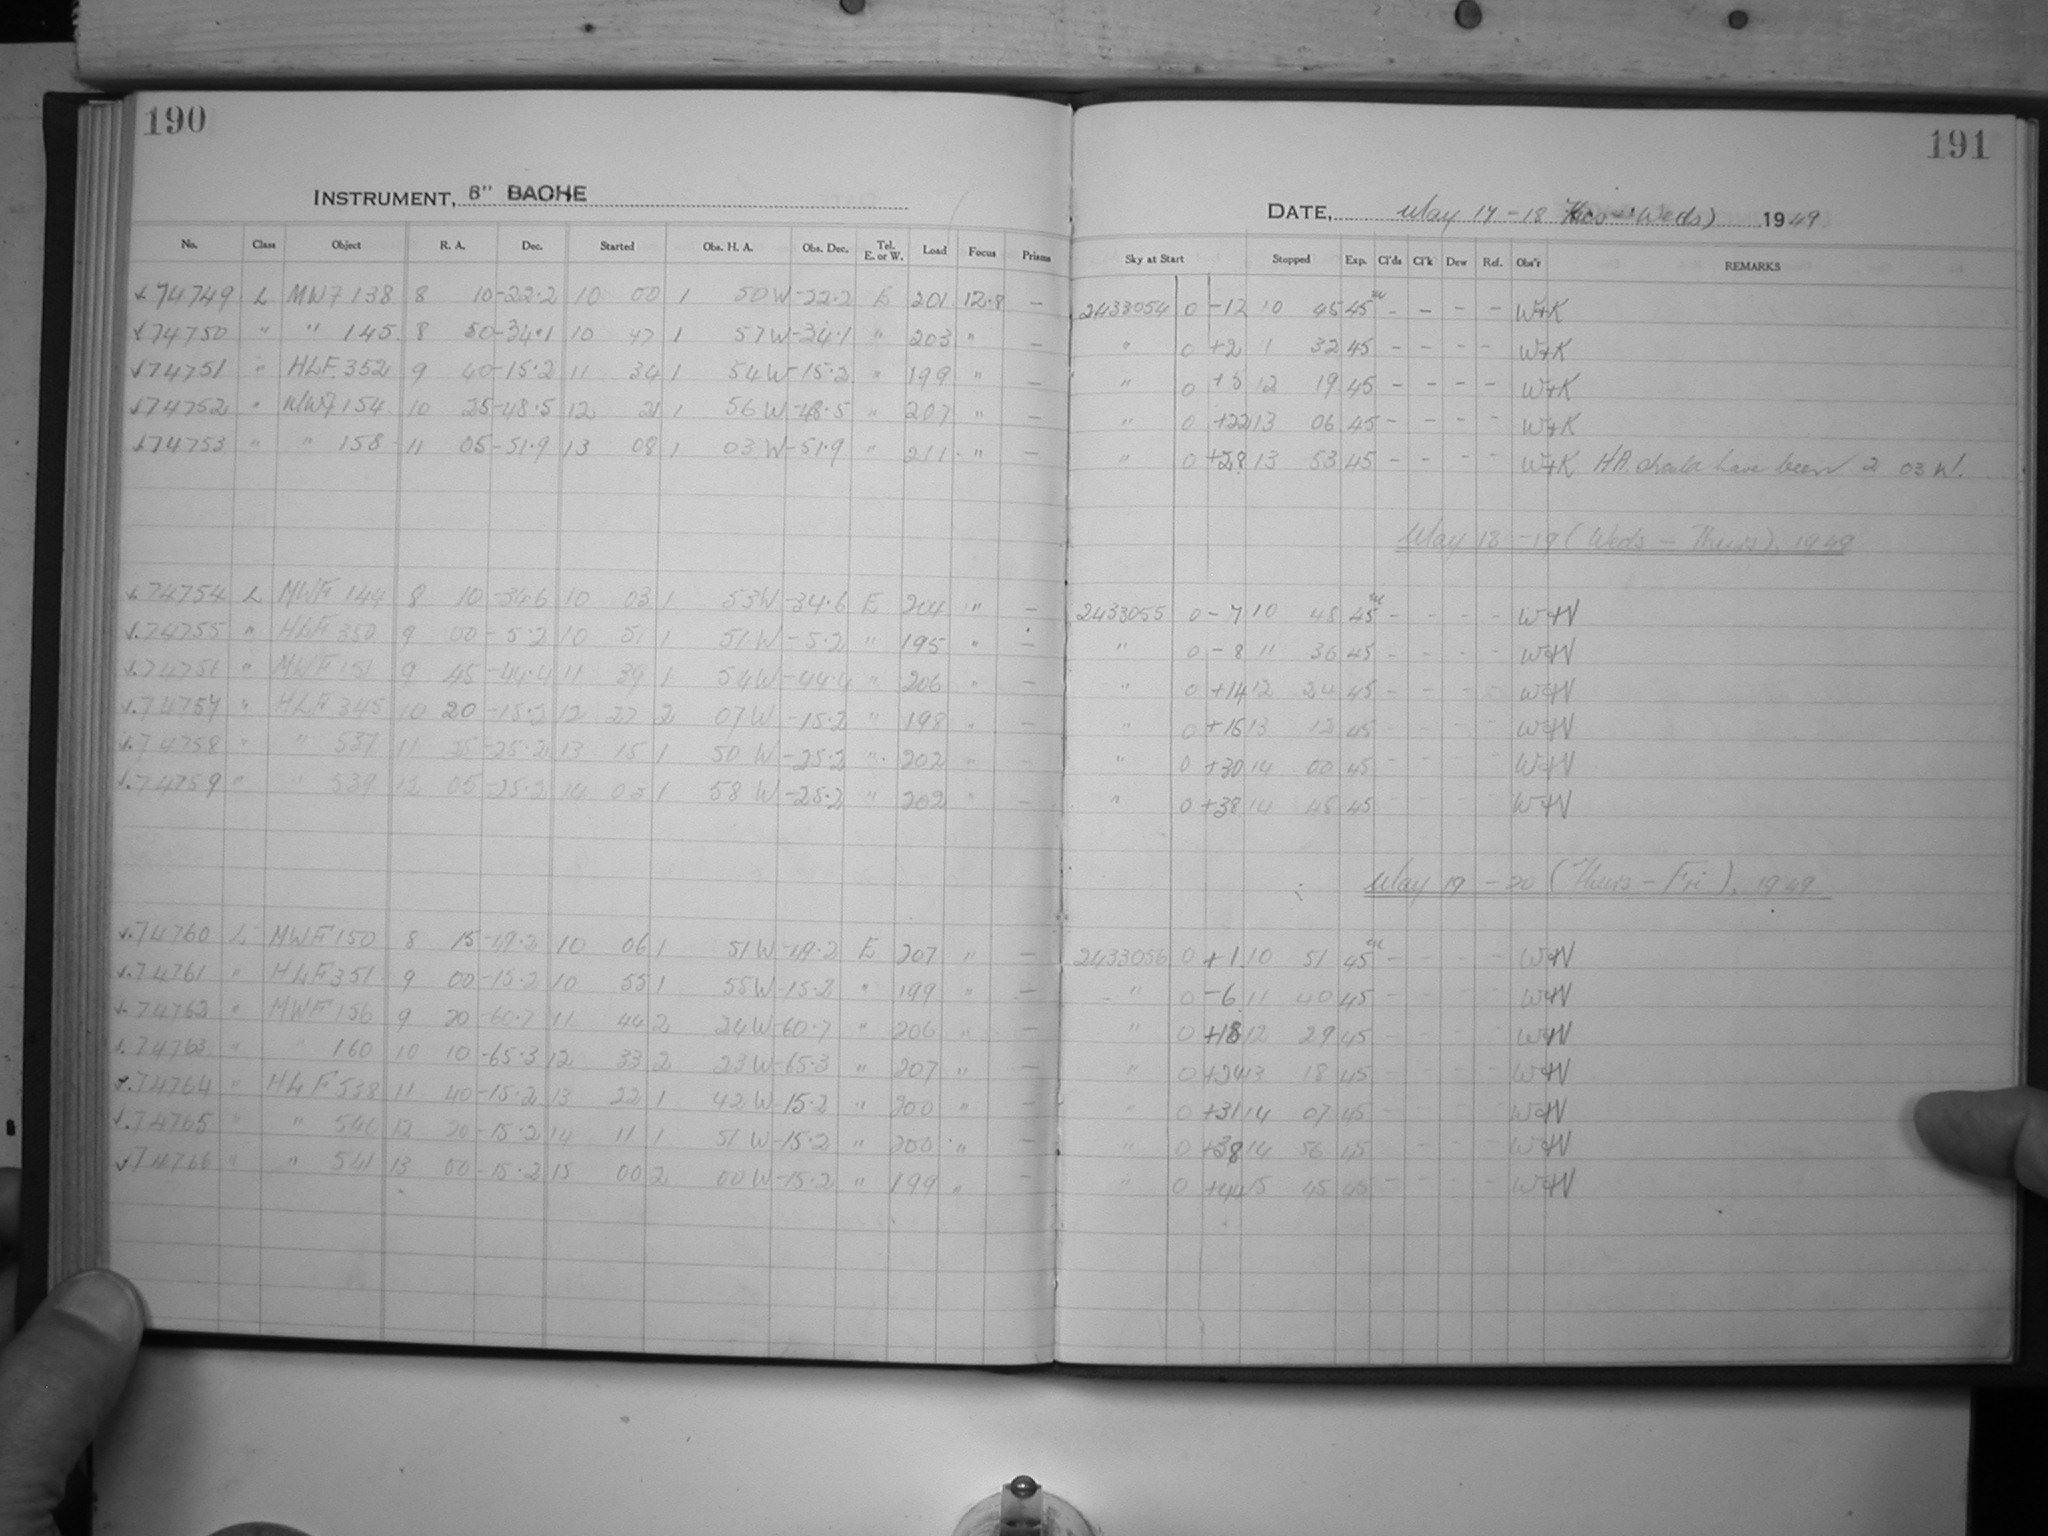 190
INSTRUMENT, 8" BACHE
No. Class Object R. A. Dec. Started Obs. H. A. Obs. Dec. Tel. E. or W. Load Focus Prisms
74749 L MWF 138 8 10 -22.2 10 00 1 50 W -22.2 E 201 12.8 —
74750 " " 145 8 50 -34.1 10 47 1 57 W -34.1 " 203 " —
74751 " HLF 352 9 40 -15.2 11 34 1 54 W -15.2 " 199 " —
74752 " MWF 154 10 25 -48.5 12 21 1 56 W -48.5 " 207 " —
74753 " " 158 11 05 -51.9 13 08 1 03 W -51.9 " 211 " —
74754 L MWF 144 8 10 -34.6 10 03 1 53 W -34.6 E 204 " —
74755 " HLF 350 9 00 -5.2 10 51 1 51 W -5.2 " 195 " —
74751 " MWF 151 9 45 -44.4 11 39 1 54 W -44.4 " 206 " —
74757 " HLF 345 10 20 -15.2 12 27 2 07 W -15.2 " 198 "
74758 " " 537 11 25 -25.2 13 15 1 50 W -25.2 " 202 "
74759 " " 539 12 05 -25.2 14 03 1 58 W -25.2 " 202 " —
74760 L MWF 150 8 15 -49.2 10 06 1 51 W -49.2 E 207 " —
74761 " HLF 351 9 00 -15.2 10 55 1 55 W -15.2 " 199 " —
74762 " MWF 156 9 20 -60.7 11 44 2 24 W -60.7 " 206 " —
74763 " " 160 10 10 -65.3 12 33 2 23 W -65.3 " 207 " —
74764 " HLF 538 11 40 -15.2 13 22 1 42 W -15.2 " 200 " —
74765 " " 540 12 20 -15.2 14 11 1 51 W -15.2 " 200 " —
74766 " " 541 13 00 -15.2 15 00 2 00 W -15.2 " 199 " —
191
DATE, May 17-18 (Tues-Weds) 1949
Sky at Start Stopped Exp. Cl'ds Cl'k Dew Ref. Obs'r REMARKS
2433054 0 -12 10 45 45 m - - - - W+K
" 0 +2 1 32 45 - - - - W+K
" 0 +5 12 19 45 - - - - W+K
" 0 +22 13 06 45 - - - - W+K
" 0 +28 13 53 45 - - - - W+K HA. should have been 2 03 W.
May 18-19 (Weds - Thurs), 1949
2433055 0 -7 10 48 45 m - - - - W+N
" 0 -8 11 36 45 - - - - W+N
" 0 +14 12 24 45 - - - - W+N
" 0 +16 13 12 45 - - - - W+N
" 0 +30 14 00 45 - - - - W+N
" 0 +38 14 48 45 W+N
May 19-20 (Thurs - Fri), 1949
2433056 0 +1 10 51 45 m - - - - W+N
" 0 -6 11 40 45 - - - - W+N
" 0 +18 12 29 45 - - - - W+N
" 0 +24 13 18 45 - - - - W+N
" 0 +31 14 07 45 - - - - W+N
" 0 +38 14 56 45 - - - - W+N
" 0 +44 15 45 45 - - - - W+N